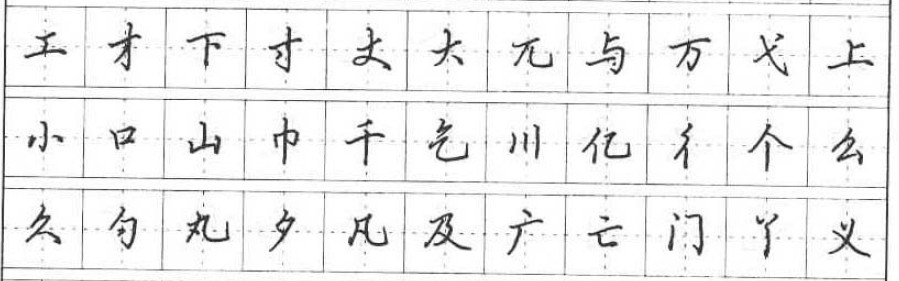 工才下寸丈大兀与万弋上
小口山巾千乞川亿彳个么
久勺丸夕凡及广亡门丫义